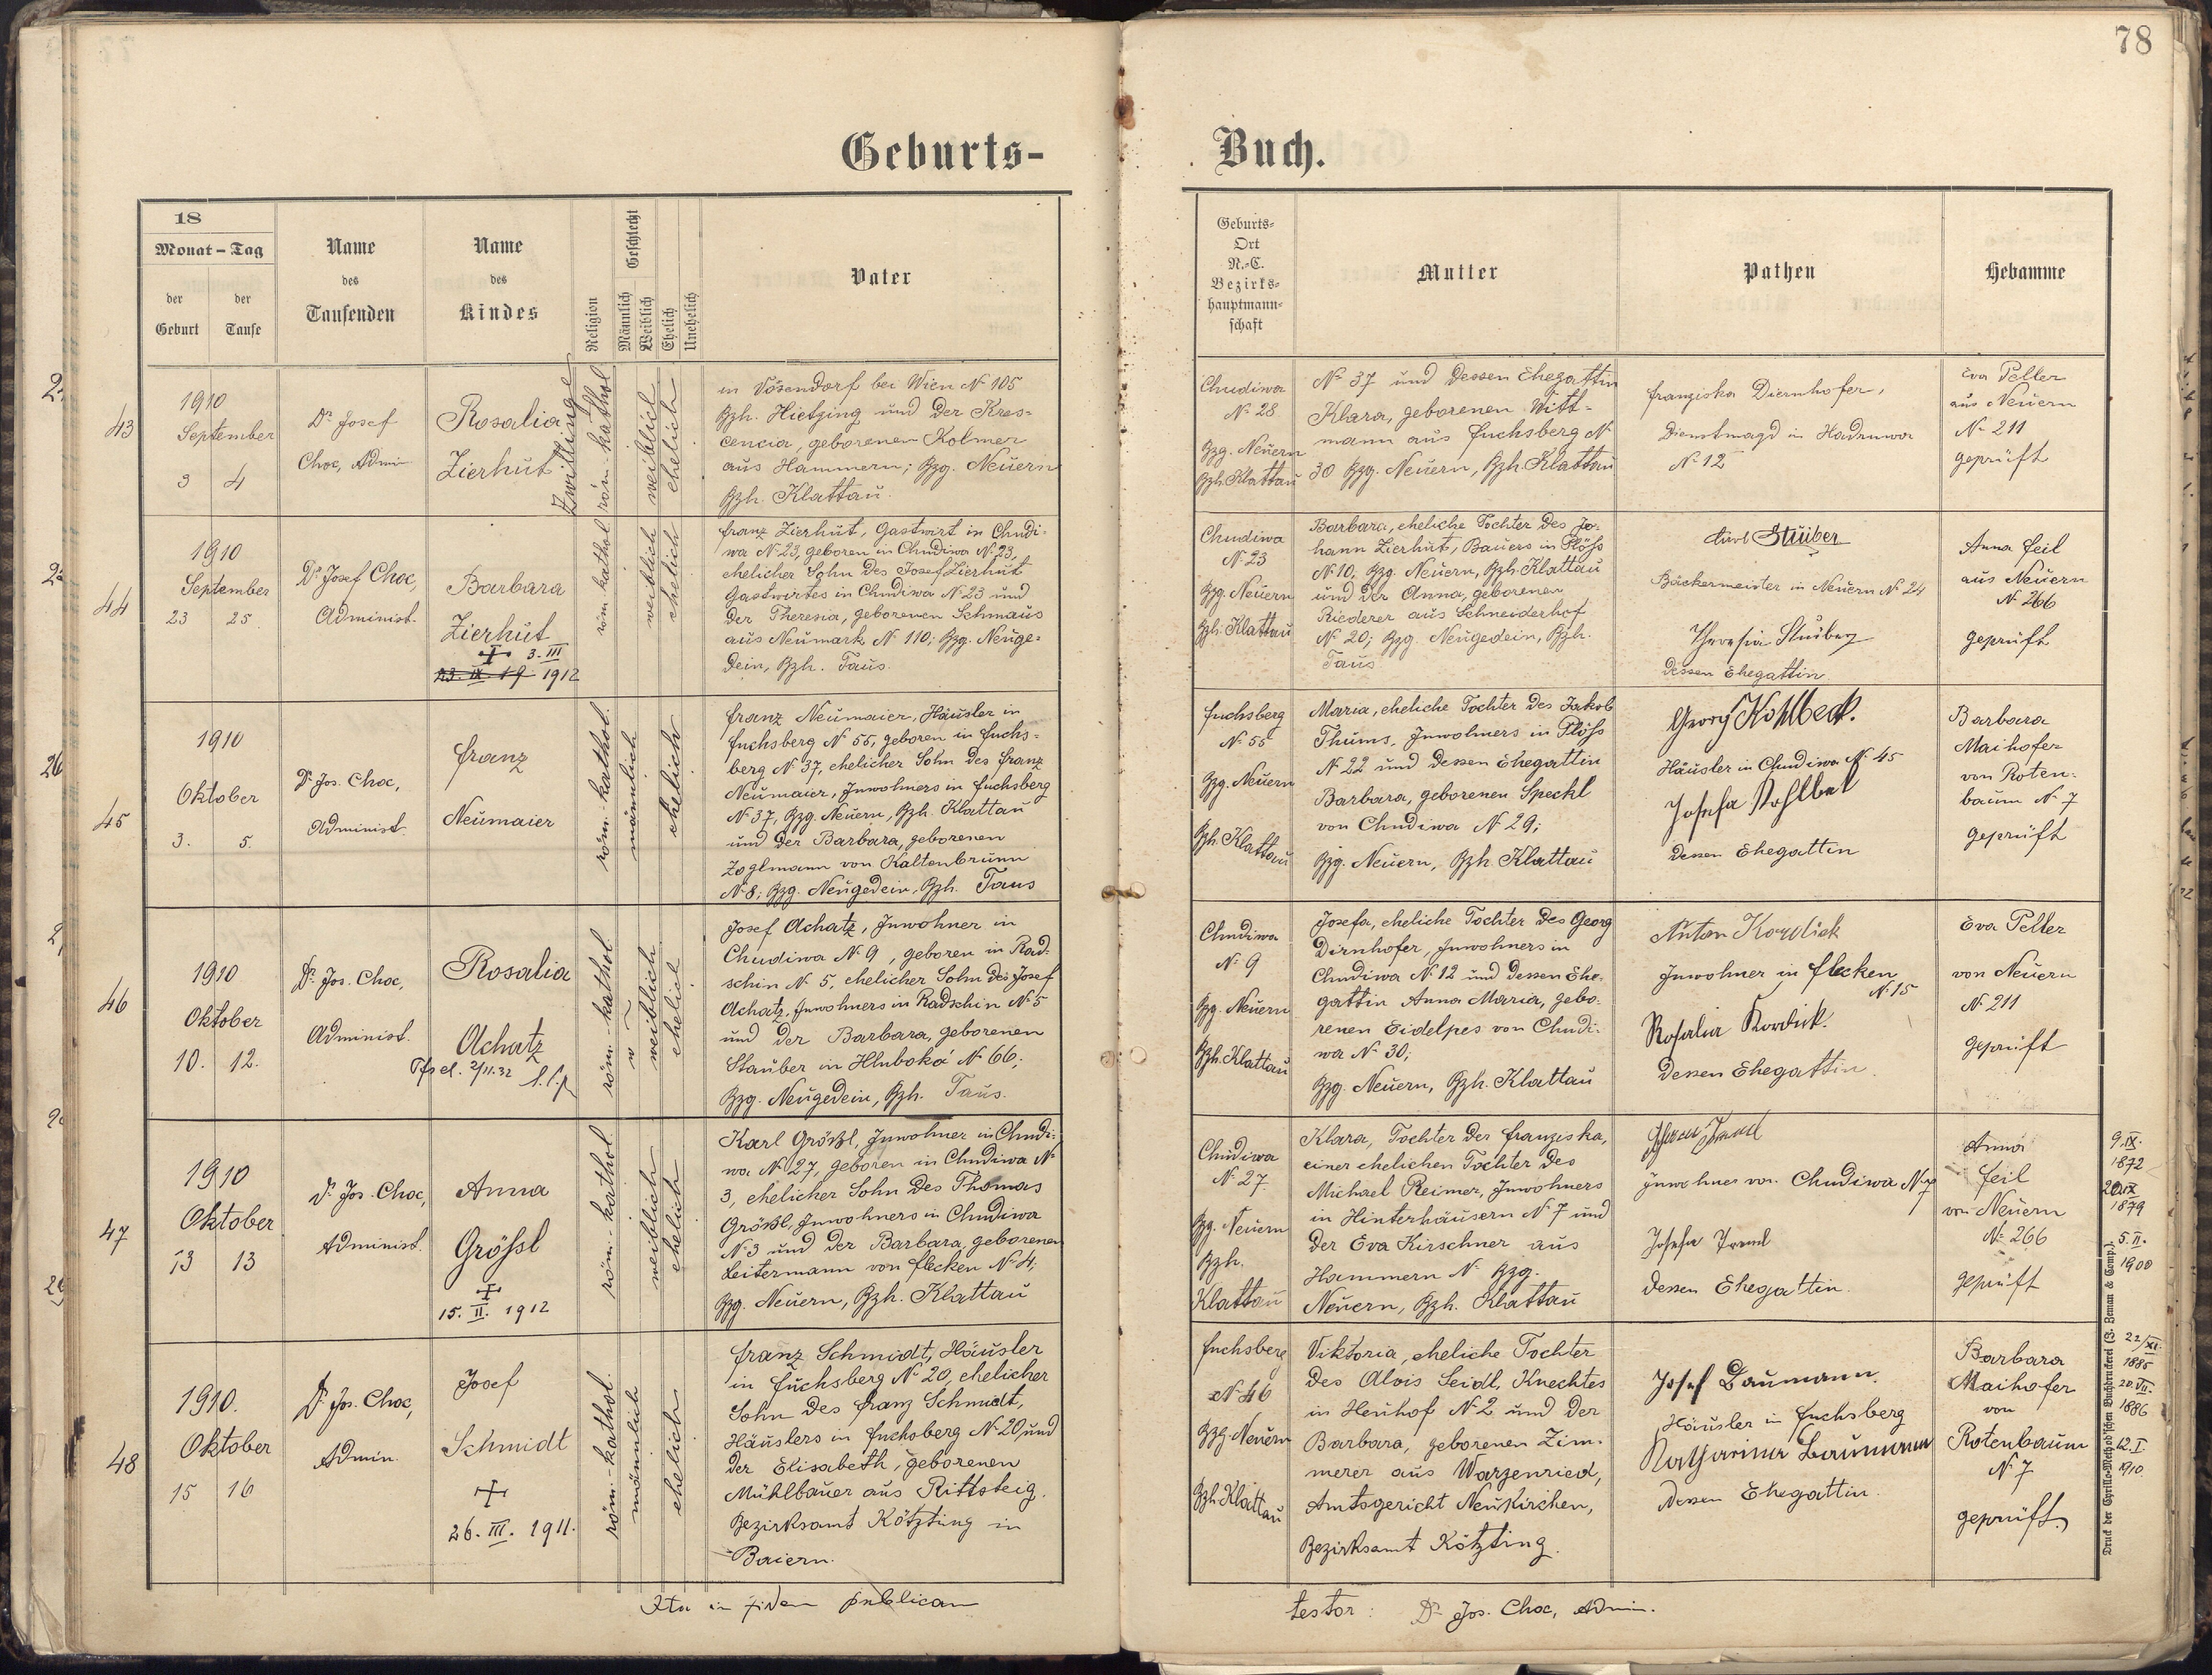 78
Geburts-
Buch.
18
Monat - Tag
der
Geburt
der
Taufe
Name
des
Taufenden
Name
des
Kindes
Religion
Geschlecht
Männlich
Weiblich
Ehelich
Unehelich
Vater
Geburts-
Ort
N.-C.
Bezirks-
hauptmann-
schaft
Mutter
Pathen
Hebamme
43
1910
September
3 4
Dr. Josef
Choc, Admi
Rosalia
Zierhut
Zwillinge
röm-kathol
weiblich
ehelich
in Vösendorf bei Wien No 105
Bzh. Hietzing und der Kres-
cencia, geborenen Kolmer
aus Hammern; Bzg. Neuern
Bzh. Klattau.
Chudiwa
No. 28
Bzg. Neuern
Bzh. Klattau
No. 37 und dessen Ehegattin
Klara, geborenen Witt-
mann aus Fuchsberg No
30 Bzg. Neuern, Bzh. Klattau
Franziska Diernhofer,
Dienstmagd in Hadruwa
No 12
Eva Peller
aus Neuern
No. 211
geprüft
44
1910
September
23 25.
Dr. Josef Choc,
Administ.
Barbara
Zierhut
+ 3. III
23. IX. 19 1912
röm kathol
weiblich
ehelich
Franz Zierhut, Gastwirt in Chudi-
wa No. 23, geboren in Chudiwa No. 23,
ehelicher Sohn des Josef Zierhut
Gastwirtes in Chudiwa No. 23 und
der Theresia, geborenen Schmaus
aus Neumark No. 110; Bzg. Neuge-
dein, Bzh. Taus.
Chudiwa
No 23
Bzg. Neuern
Bzh. Klattau
Barbara, eheliche Tochter des Jo-
hann Zierhut, Bauers in Plöss
No 10, Bzg. Neuern, Bzh. Klattau
und der Anna, geborenen
Riederer aus Schneiderhof
No. 20; Bzg. Neugedein, Bzh.
Taus
Stüiber
Bäckermeister in Neuern No 24
Theresia Stüiber
dessen Ehegattin
Anna Feil
aus Neuern
No. 266
geprüft
45
1910
Oktober
3. 5.
Dr. Jos. Choc,
Administ.
Franz
Neumaier
röm.-kathol.
männlich
ehelich
Franz Neumaier, Häusler in
Fuchsberg No 55, geboren in Fuchs-
berg No. 37, ehelicher Sohn des Franz
Neumaier, Inwohners in Fuchsberg
No. 37, Bzg. Neuern, Bzh. Klattau
und der Barbara, geborenen
Zoglmann von Kaltenbrunn
No 8; Bzg. Neugedein, Bzh. Taus
Fuchsberg
No. 55
Bzg. Neuern
Bzh. Klattau
Maria, eheliche Tochter des Jakob
Thums, Inwohners in Plöss
No 22 und dessen Ehegattin
Barbara, geborenen Speckl
von Chudiwa No 29;
Bzg. Neuern, Bzh Klattau
Georg Kohlbeck.
Häusler in Chudiwa No. 45
Josefa Kohlbek
dessen Ehegattin
Barbara
Maihofer
von Roten-
baum No. 7
geprüft
46
1910
Oktober
10. 12.
Dr. Jos. Choc,
Administ.
Rosalia
Achatz
röm.-kathol.
weiblich
ehelich
Josef Achatz, Inwohner in
Chudiwa No 9, geboren in Rad-
schin No. 5, ehelicher Sohn des Josef
Achatz, Inwohners in Radschin No 5
und der Barbara, geborenen
Stauber in Hluboka No. 66;
Bzg. Neugedein, Bzh. Taus.
Chudiwa
No. 9
Bzg. Neuern
Bzh. Klattau
Josefa, eheliche Tochter des Georg
Dirnhofer, Inwohners in
Chudiwa No. 12 und dessen Ehe-
gattin Anna Maria, gebo-
renen Eidelpes von Chudi-
wa No. 30;
Bzg. Neuern, Bzh. Klattau
Anton Kordick
Inwohner in Flecken
No. 15
Rosalia Kordick.
dessen Ehegattin.
Eva Peller
von Neuern
No. 211
geprüft
47
1910
Oktober
13 13
Dr. Jos. Choc,
Administ.
Anna
Grössl
+
15. II. 1912
röm.-kathol.
weiblich
ehelich
Karl Grössl, Inwohner in Chudi-
wa No. 27, geboren in Chudiwa No
3, ehelicher Sohn des Thomas
Grössl, Inwohners in Chudiwa
No. 3 und der Barbara, geborenen
Leitermann von Flecken No. 4;
Bzg. Neuern, Bzh. Klattau
Chudiwa
No. 27.
Bzg. Neuern
Bzh.
Klattau
Klara, Tochter der Franziska,
einer ehelichen Tochter des
Michael Reimer, Inwohners
in Hinterhäusern No. 7 und
der Eva Kirschner aus
Hammern No. Bzg.
Neuern, Bzh. Klattau
Inwohner von Chudiwa No. 7
Josefa
dessen Ehegattin.
Anna
Feil
von Neuern
No. 266
geprüft
9. IX.
1872
1879
5. II.
1900
48
1910.
Oktober
15 16
Dr. Jos. Choc,
Admin.
Josef
Schmidt
+
26. III. 1911.
röm.-kathol.
männlich
ehelich
Franz Schmidt, Häusler
in Fuchsberg No. 20, ehelicher
Sohn des Franz Schmidt,
Häuslers in Fuchsberg No 20 und
der Elisabeth, geborenen
Mühlbauer aus Rittsteig.
Bezirksamt Kötzting in
Baiern.
Fuchsberg
No. 46
Bzg. Neuern
Bzh. Klattau
Viktoria, eheliche Tochter
des Alois Seidl, Knechtes
in Heuhof No. 2 und der
Barbara, geborenen Zim-
merer aus Warzenried,
Amtsgericht Neukirchen,
Bezirksamt Kötzting.
Josef Baumann.
Häusler in Fuchsberg
Katharina Baumann
dessen Ehegattin.
Barbara
Maihofer
von
Rotenbaum
No. 7
geprüft
22/XI.
1885
20. VII.
1886
12. I.
1910.
Druck der Cyrillo-Method'schen Buchdruckerei (J. Zeman & Comp.).
Ita in fidem publicam
testor: Dr. Jos. Choc, Admin.